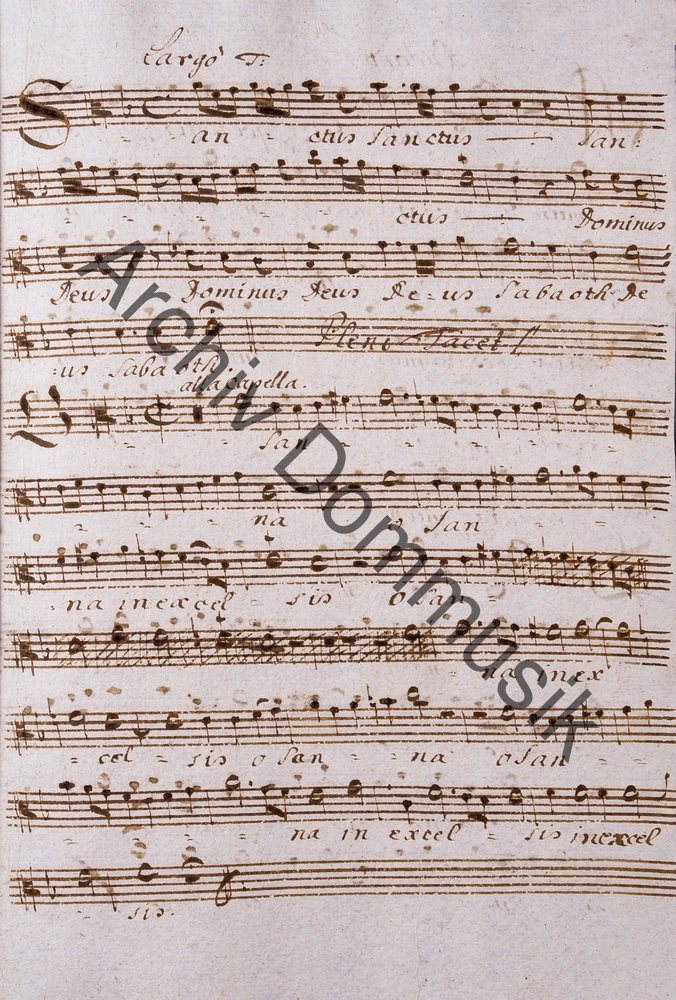 Largo T:
San - - ctus Sanctus — San:
- - - - - ctus — Dominus
Deus Dominus Deus De = us Sabaoth De
=us Sabaoth.
Pleni Tacet
alla capella.
San - - - -
- - - na O San - -
- na in excel - sis O San -
- na in ex
- cel - sis o San - - na o San - -
- - - - na in excel - sis in excel
- sis.
Archiv Dommusik